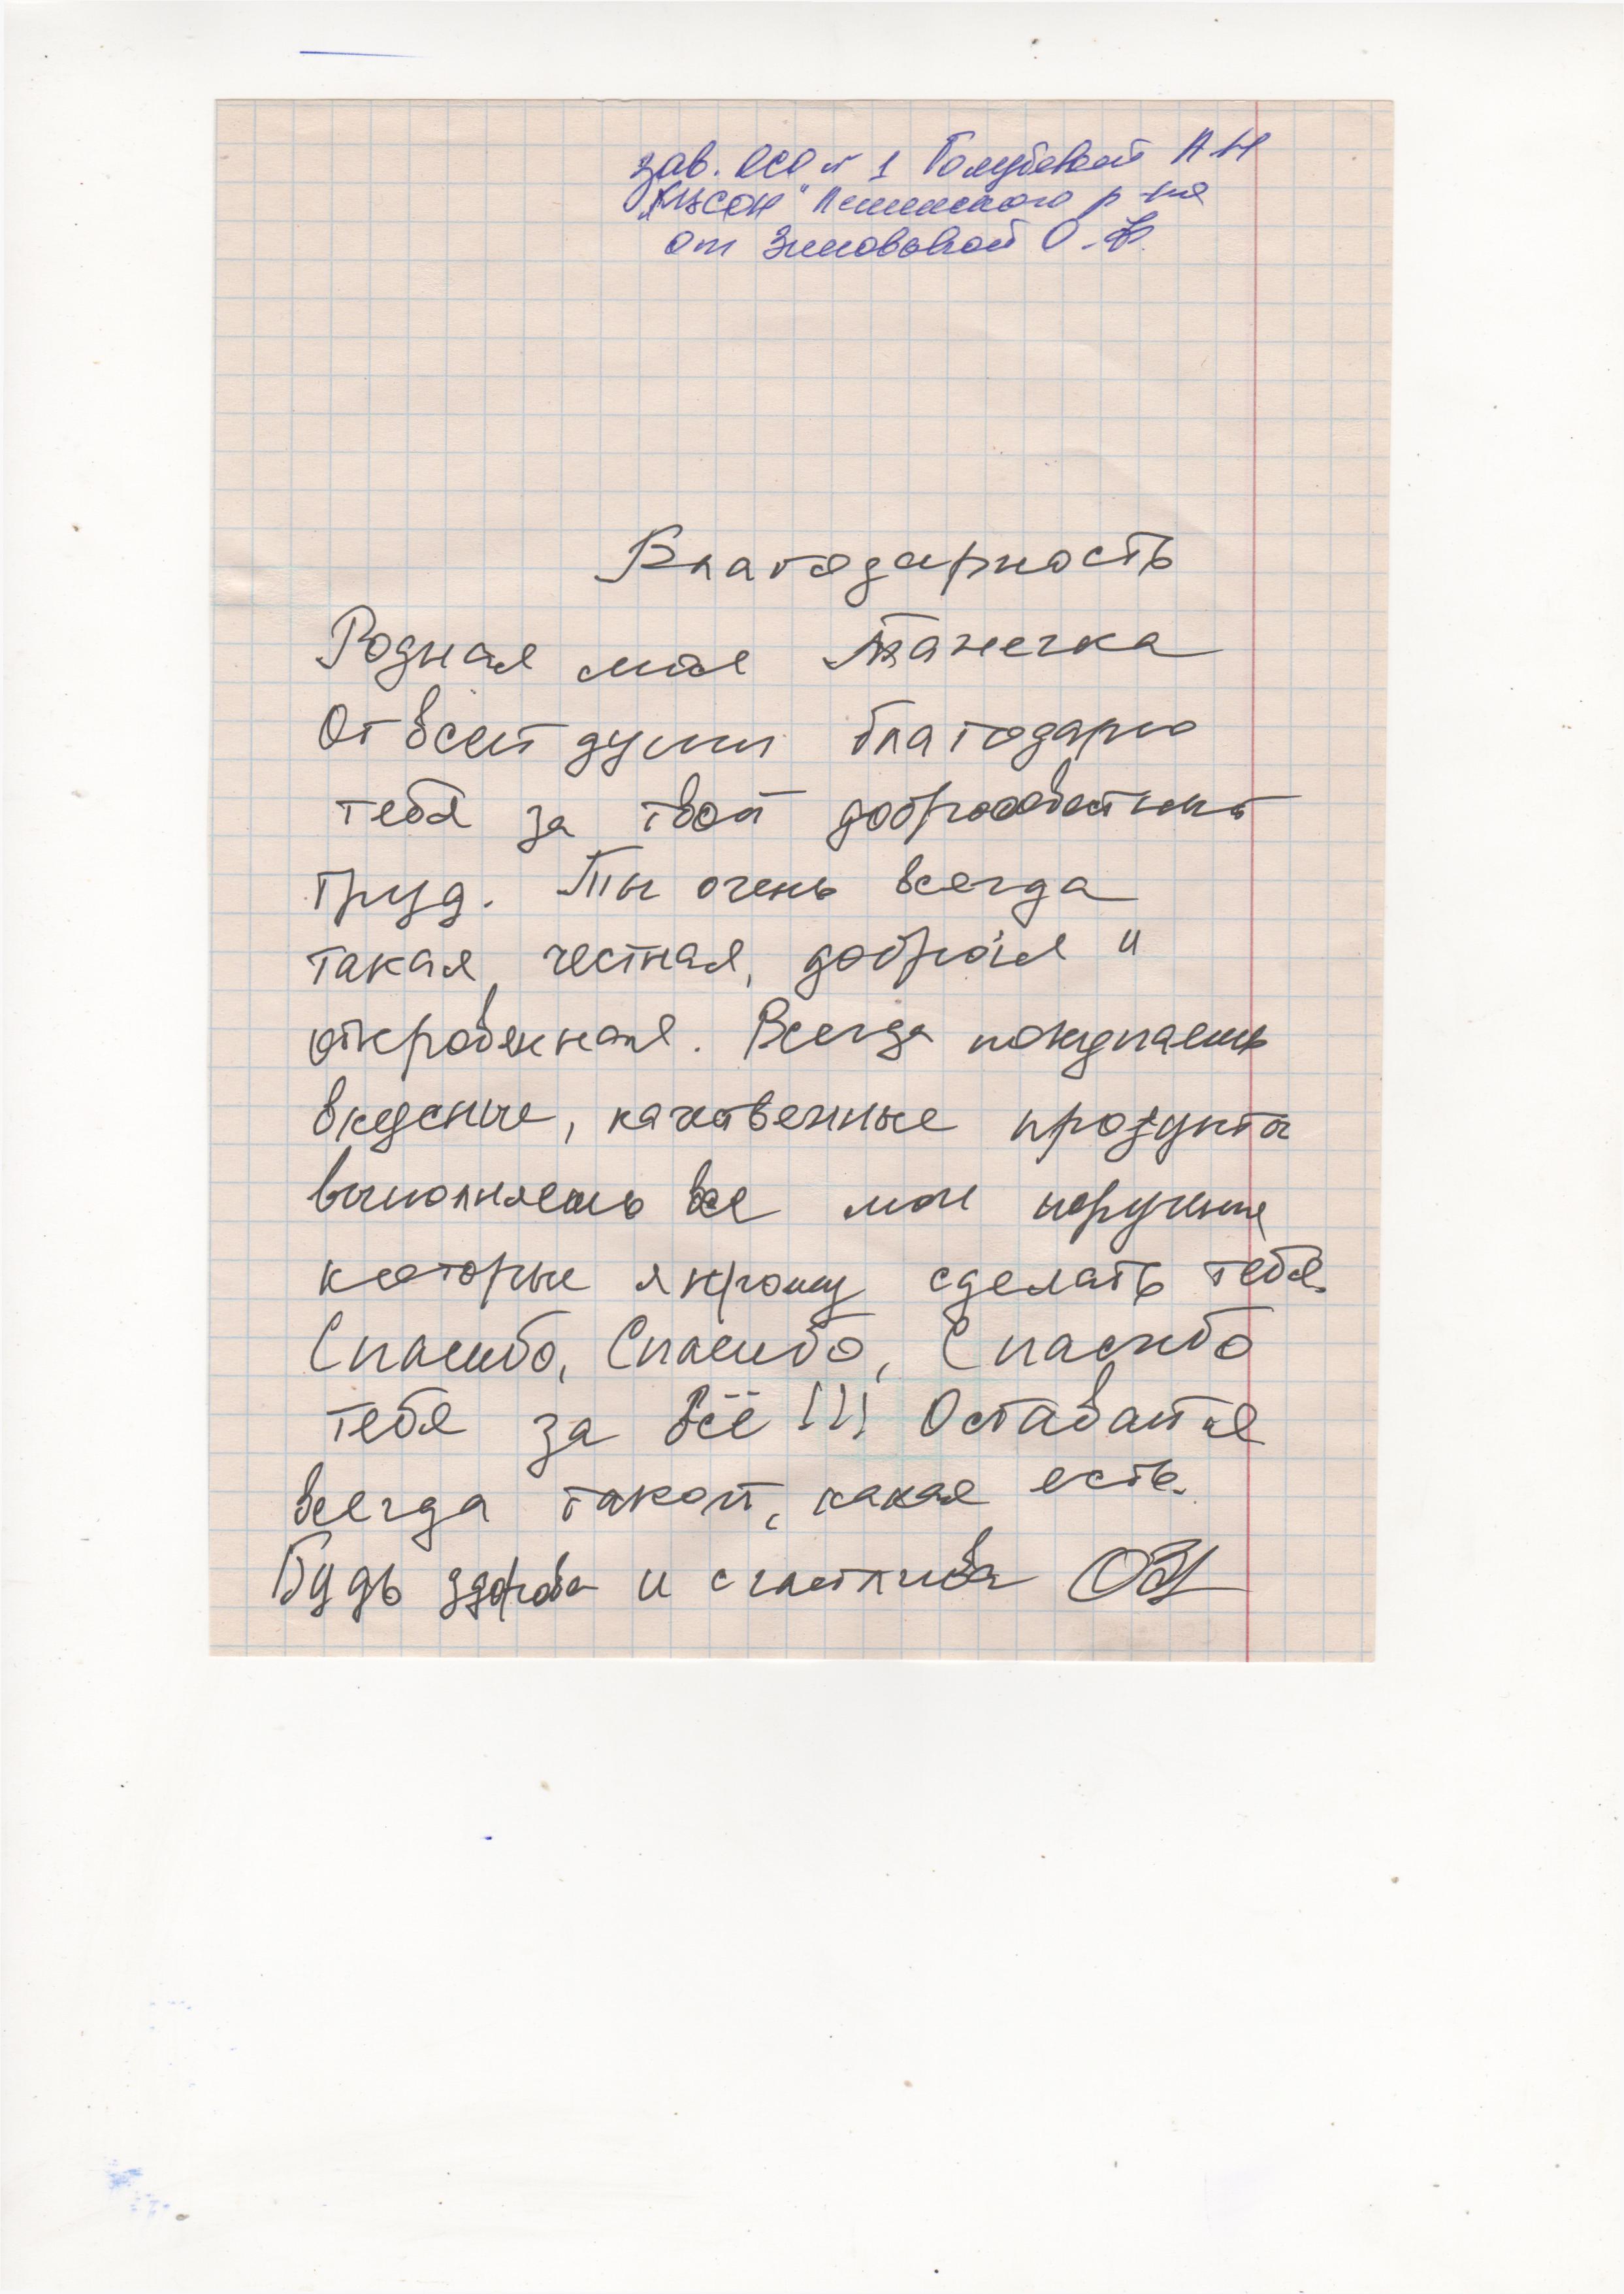 зав. ОСО № 1 Голубевой А Н
"КЦСОН" Ленинского р-на
от Зиновьевой О.Ф.
Благодарность
Родная моя Танечка
От всей души благодарю
тебя за твой добросовестный
труд. Ты очень всегда
такая, честная, добрая и
откровенная. Всегда покупаешь
вкусные, качественные продукты
выполняешь все мои поручения
которые я прошу сделать тебя.
Спасибо, Спасибо, Спасибо
тебя за всё!!! Оставайся
всегда такой, какая есть.
Будь здорова и счастлива